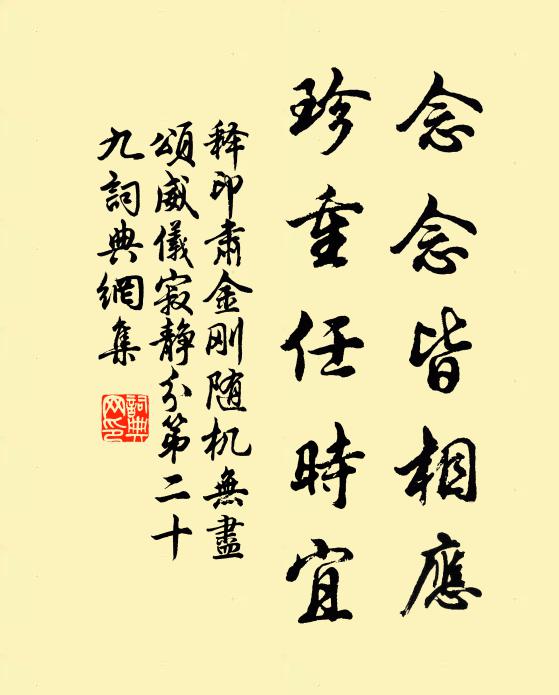 念念皆相應
珍重任時宜
释印肃金刚随机無盡
頌威儀寂静分第二十
九詞典網集
詞典
网印